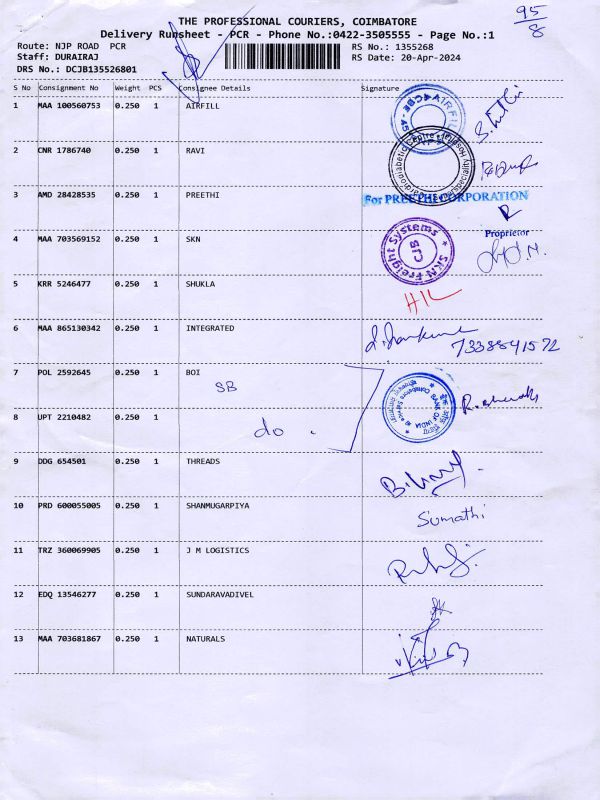 THE PROFESSIONAL COURIERS, COIMBATORE
95/8
Delivery Runsheet - PCR - Phone No.:0422-3505555 - Page No.:1
Route: NJP ROAD PCR
RS No.: 1355268
Staff: DURAIRAJ
RS Date: 20-Apr-2024
DRS No.: DCJB135526801
S No Consignment No Weight PCS Consignee Details Signature
1 MAA 100560753 0.250 1 AIRFILL
2 CNR 1786740 0.250 1 RAVI
3 AMD 28428535 0.250 1 PREETHI
For PREETHI CORPORATION
Proprietor
4 MAA 703569152 0.250 1 SKN
SKN Freight Systems
CJB
5 KRR 5246477 0.250 1 SHUKLA
6 MAA 865130342 0.250 1 INTEGRATED
7338841572
7 POL 2592645 0.250 1 BOI
SB
BANK OF INDIA
8 UPT 2210482 0.250 1
do.
9 DDG 654501 0.250 1 THREADS
10 PRD 600055005 0.250 1 SHANMUGARPIYA
Sumathi
11 TRZ 360069905 0.250 1 J M LOGISTICS
12 EDQ 13546277 0.250 1 SUNDARAVADIVEL
13 MAA 703681867 0.250 1 NATURALS